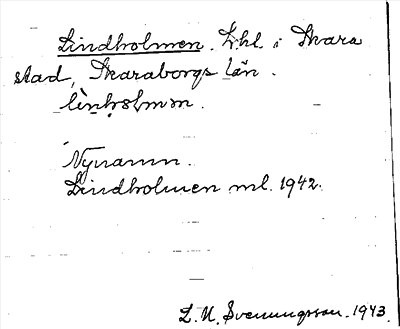 Lindholmen. Lhl. i Skara
stad, Skaraborgs län.
lìnhɔlmən.
Nynamn.
Lindholmen ml. 1942.
L. N. Svenungsson. 1943.